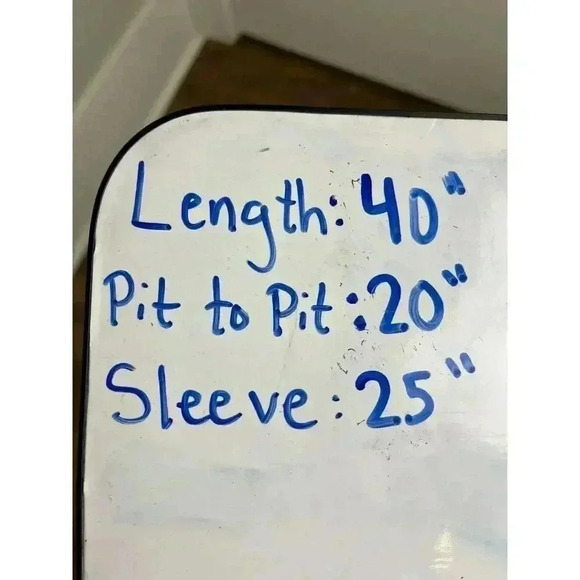 Length: 40"
Pit to Pit: 20"
Sleeve: 25"